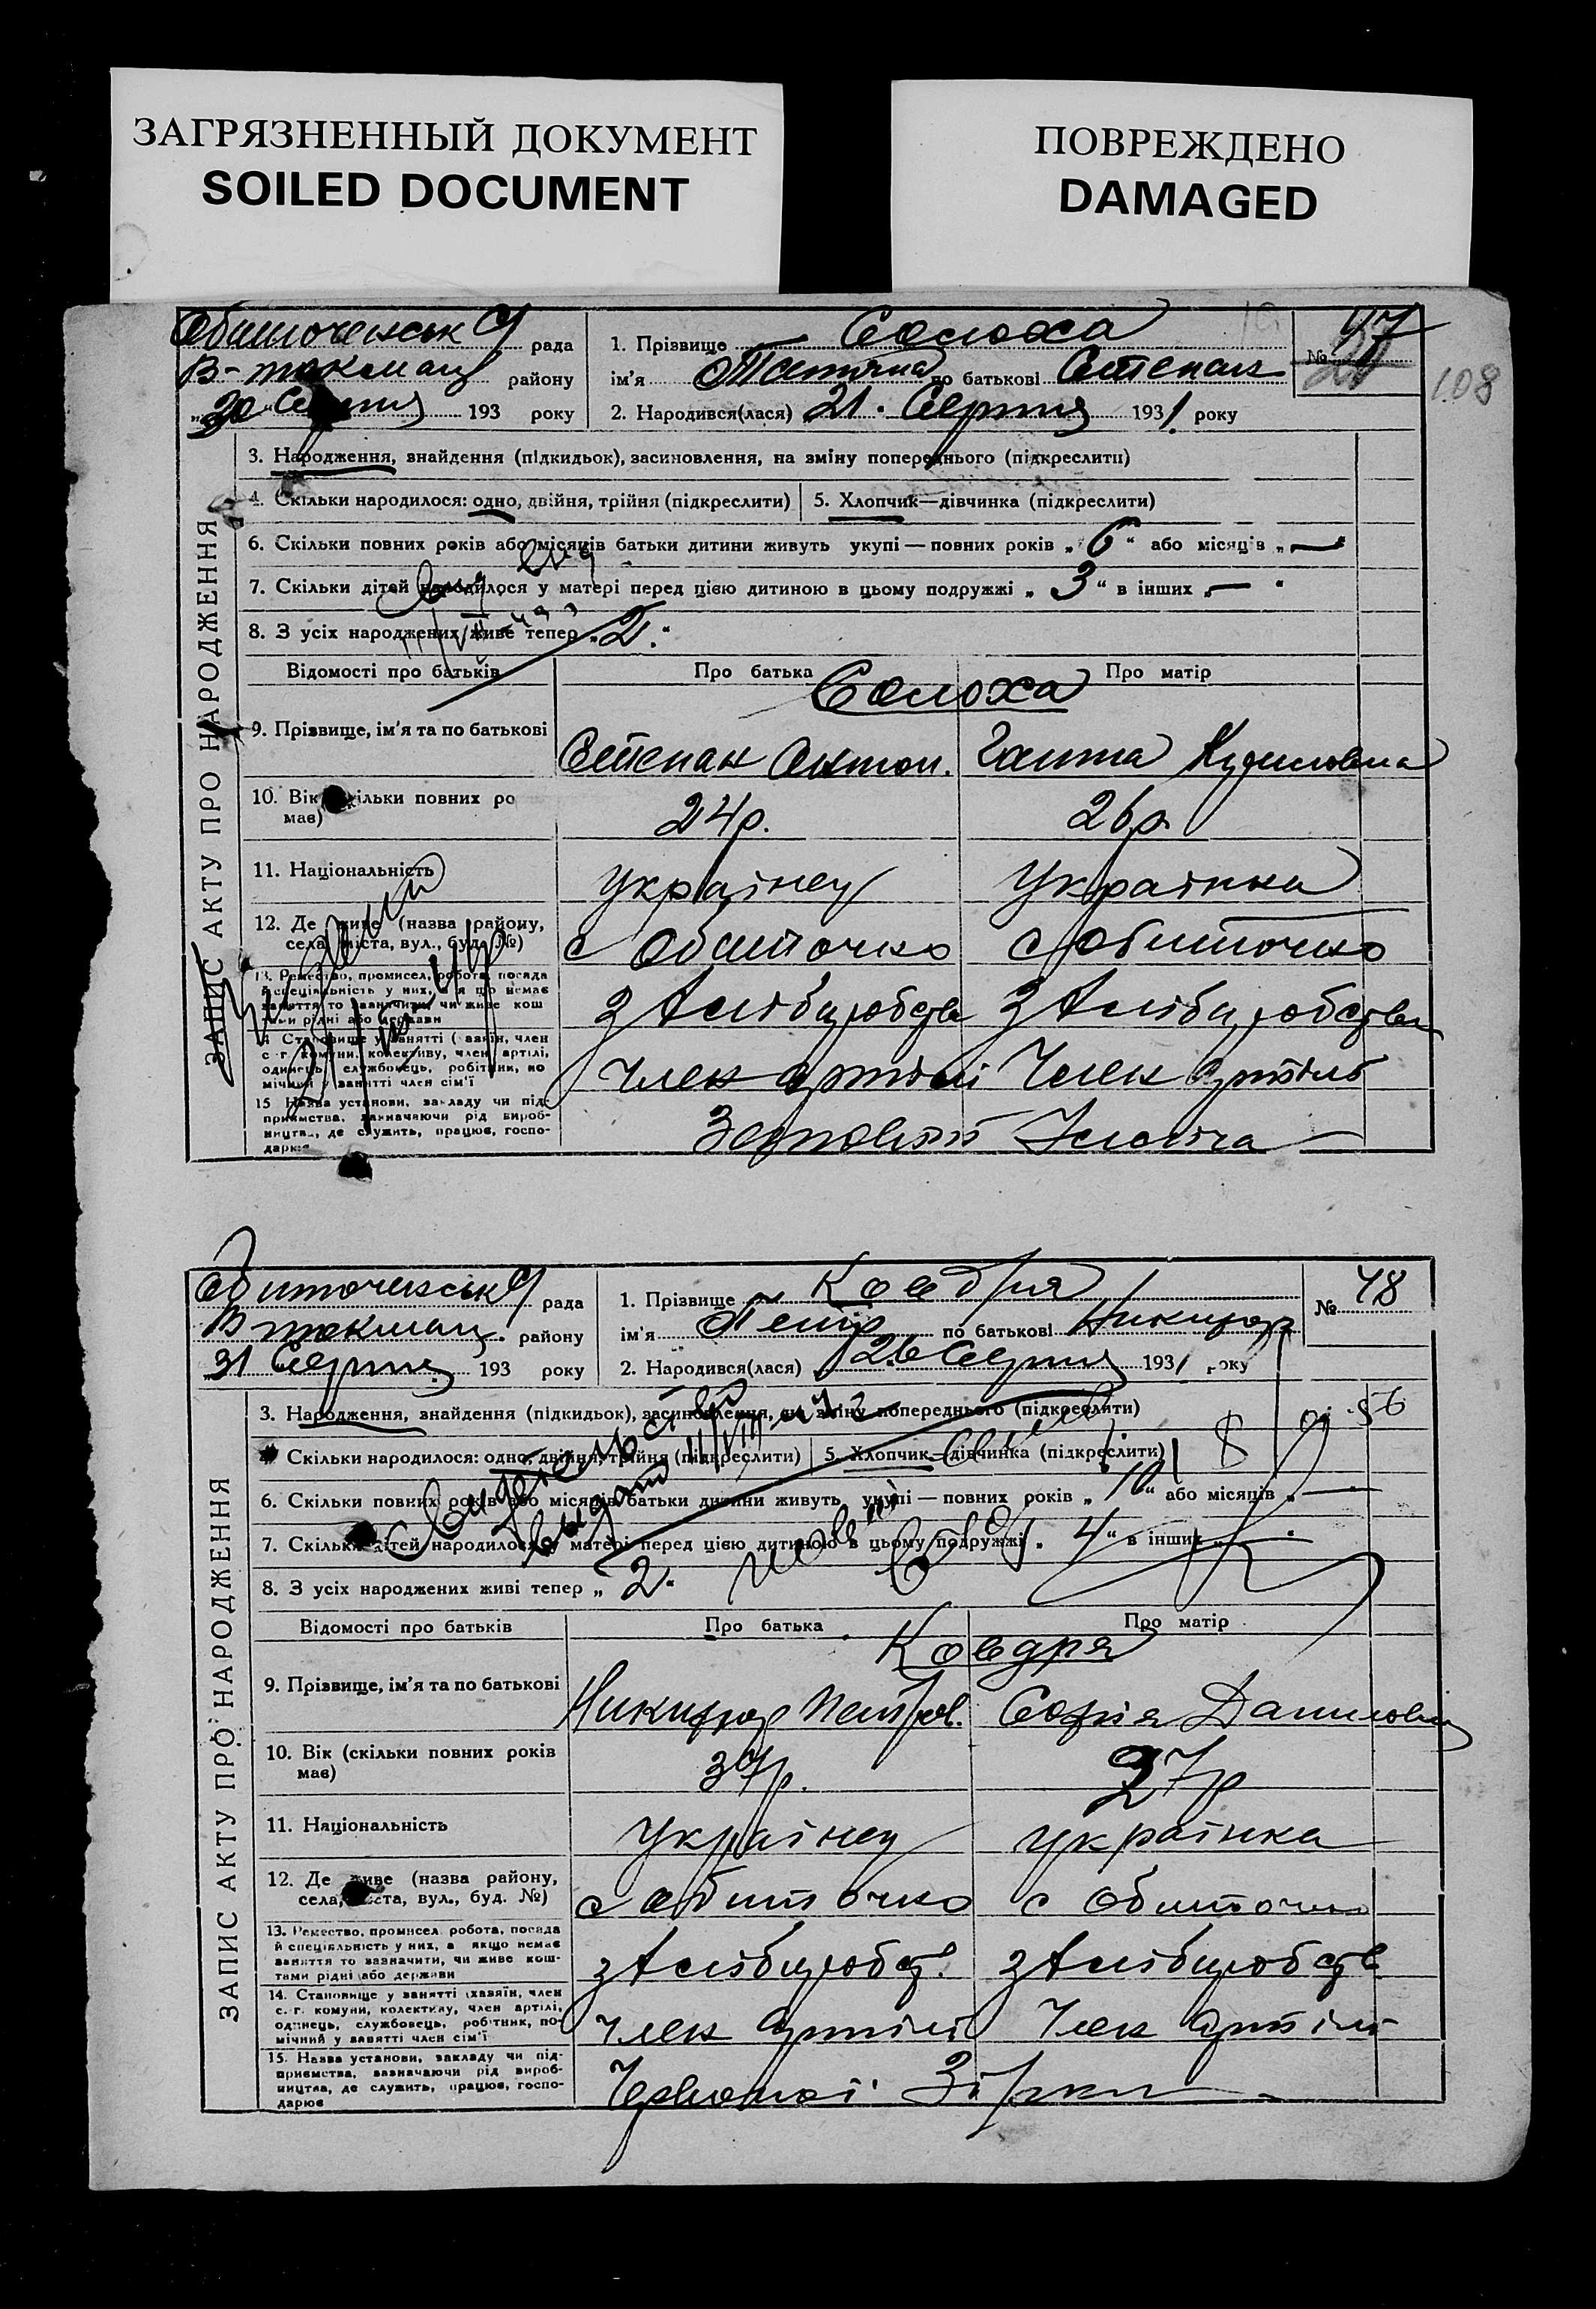 ЗАГРЯЗНЕННЫЙ ДОКУМЕНТ
SOILED DOCUMENT
ПОВРЕЖДЕНО
DAMAGED
108
ЗАПИС АКТУ ПРО НАРОДЖЕННЯ
рада
В-токмац району
30 Серпня 193 року
1. Прізвище Солоха
ім'я Тетяна по батькові Степан
2. Народився(лася) 21. Серпня 1931 року
№
3. Народження, знайдення (підкидьок), засиновлення, на зміну попереднього (підкреслити)
4. Скільки народилося: одно, двійня, трійня (підкреслити)
5. Хлопчик—дівчинка (підкреслити)
6. Скільки повних років або місяців батьки дитини живуть укупі — повних років „ 6 “ або місяців „ —
7. Скільки дітей народилося у матері перед цією дитиною в цьому подружжі „ 3 “ в інших „ — “
8. З усіх народжених живе тепер „ 2. “
Відомості про батьків Про батька Про матір
Солоха
9. Прізвище, ім'я та по батькові Степан Антон. Ганна
10. Вік скільки повних ро
має) 24р. 26р.
11. Національність українец Українка
12. Де живе (назва району,
села, міста, вул., буд. №) с Обиточно с Обиточно
13. Ремество, промисел, робота, посада
й спеціяльність у них, а якщо немає
заняття то зазначити, чи живе кош
тами рідні або держави
14. Становище у занятті (хазяїн, член
с г. комуни, колективу, член артілі,
одинець, службовець, робітник, по
мічний у занятті член сім'ї Член артілі Член артілі
15 Назва установи, закладу чи під-
приємства, зазначаючи рід вироб-
ництва, де служить, працює, госпо-
дарює Заповіт Ілліча
ЗАПИС АКТУ ПРО НАРОДЖЕННЯ
рада
В токмац. району
31 Серпня 193 року
1. Прізвище Ковдря
ім'я Петр по батькові Никифор
2. Народився(лася) 26 Серпня 1931 року
№ 78
3. Народження, знайдення (підкидьок), засиновлення, на зміну попереднього (підкреслити)
4. Скільки народилося: одно, двійня, трійня (підкреслити)
5. Хлопчик—дівчинка (підкреслити)
6. Скільки повних років або місяців батьки дитини живуть укупі — повних років „ 10 “ або місяців „ —
7. Скільки дітей народилося у матері перед цією дитиною в цьому подружжі „ 4 “ в інших „
8. З усіх народжених живі тепер „ 2. “
Відомості про батьків Про батька Про матір
Ковдря
9. Прізвище, ім'я та по батькові Никифор Петров. Софія Даниловна
10. Вік (скільки повних років
має) 37р. 27р
11. Національність українец українка
12. Де живе (назва району,
села, міста, вул., буд. №) с Обиточно с Обиточно
13. Ремество, промисел робота, посада
й спеціяльність у них, а якщо немає
заняття то зазначити, чи живе кош-
тами рідні або держави
14. Становище у занятті (хазяїн, член
с. г. комуни, колективу, член артілі,
одинець, службовець, робітник, по-
мічний у занятті член сім'ї член артілі Член артілі
15. Назва установи, закладу чи під-
приємства, зазначаючи рід вироб-
ництва, де служить, працює, госпо-
дарює Червоної Зірки